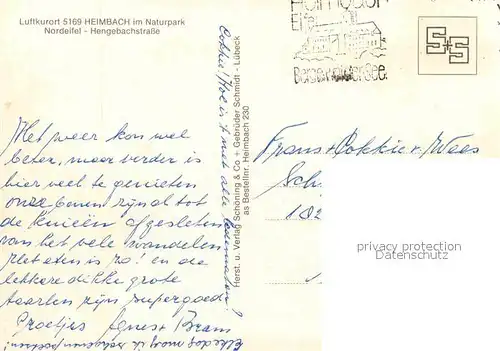 Luftkurort 5169 HEIMBACH im Naturpark
Nordeifel - Hengebachstraße
Heimbach
Eifel
S+S
Het weer kon wel
beter, maar verder is
hier veel te genieten
onze benen zijn al tot
de knieën afgesleten
van het vele wandelen
Het eten is zo! en de
lekkere dikke grote
taarten zijn supergoed
Groetjes Agnes + Bram
Elke dag mag ik
Cokkie! Hoe is 't met alle
Herst. u. Verlag Schöning & Co + Gebrüder Schmidt - Lübeck
as Bestellnr. Heimbach 230
Frans + Cokkie v. Wees
Sch
102
privacy protection
Datenschutz